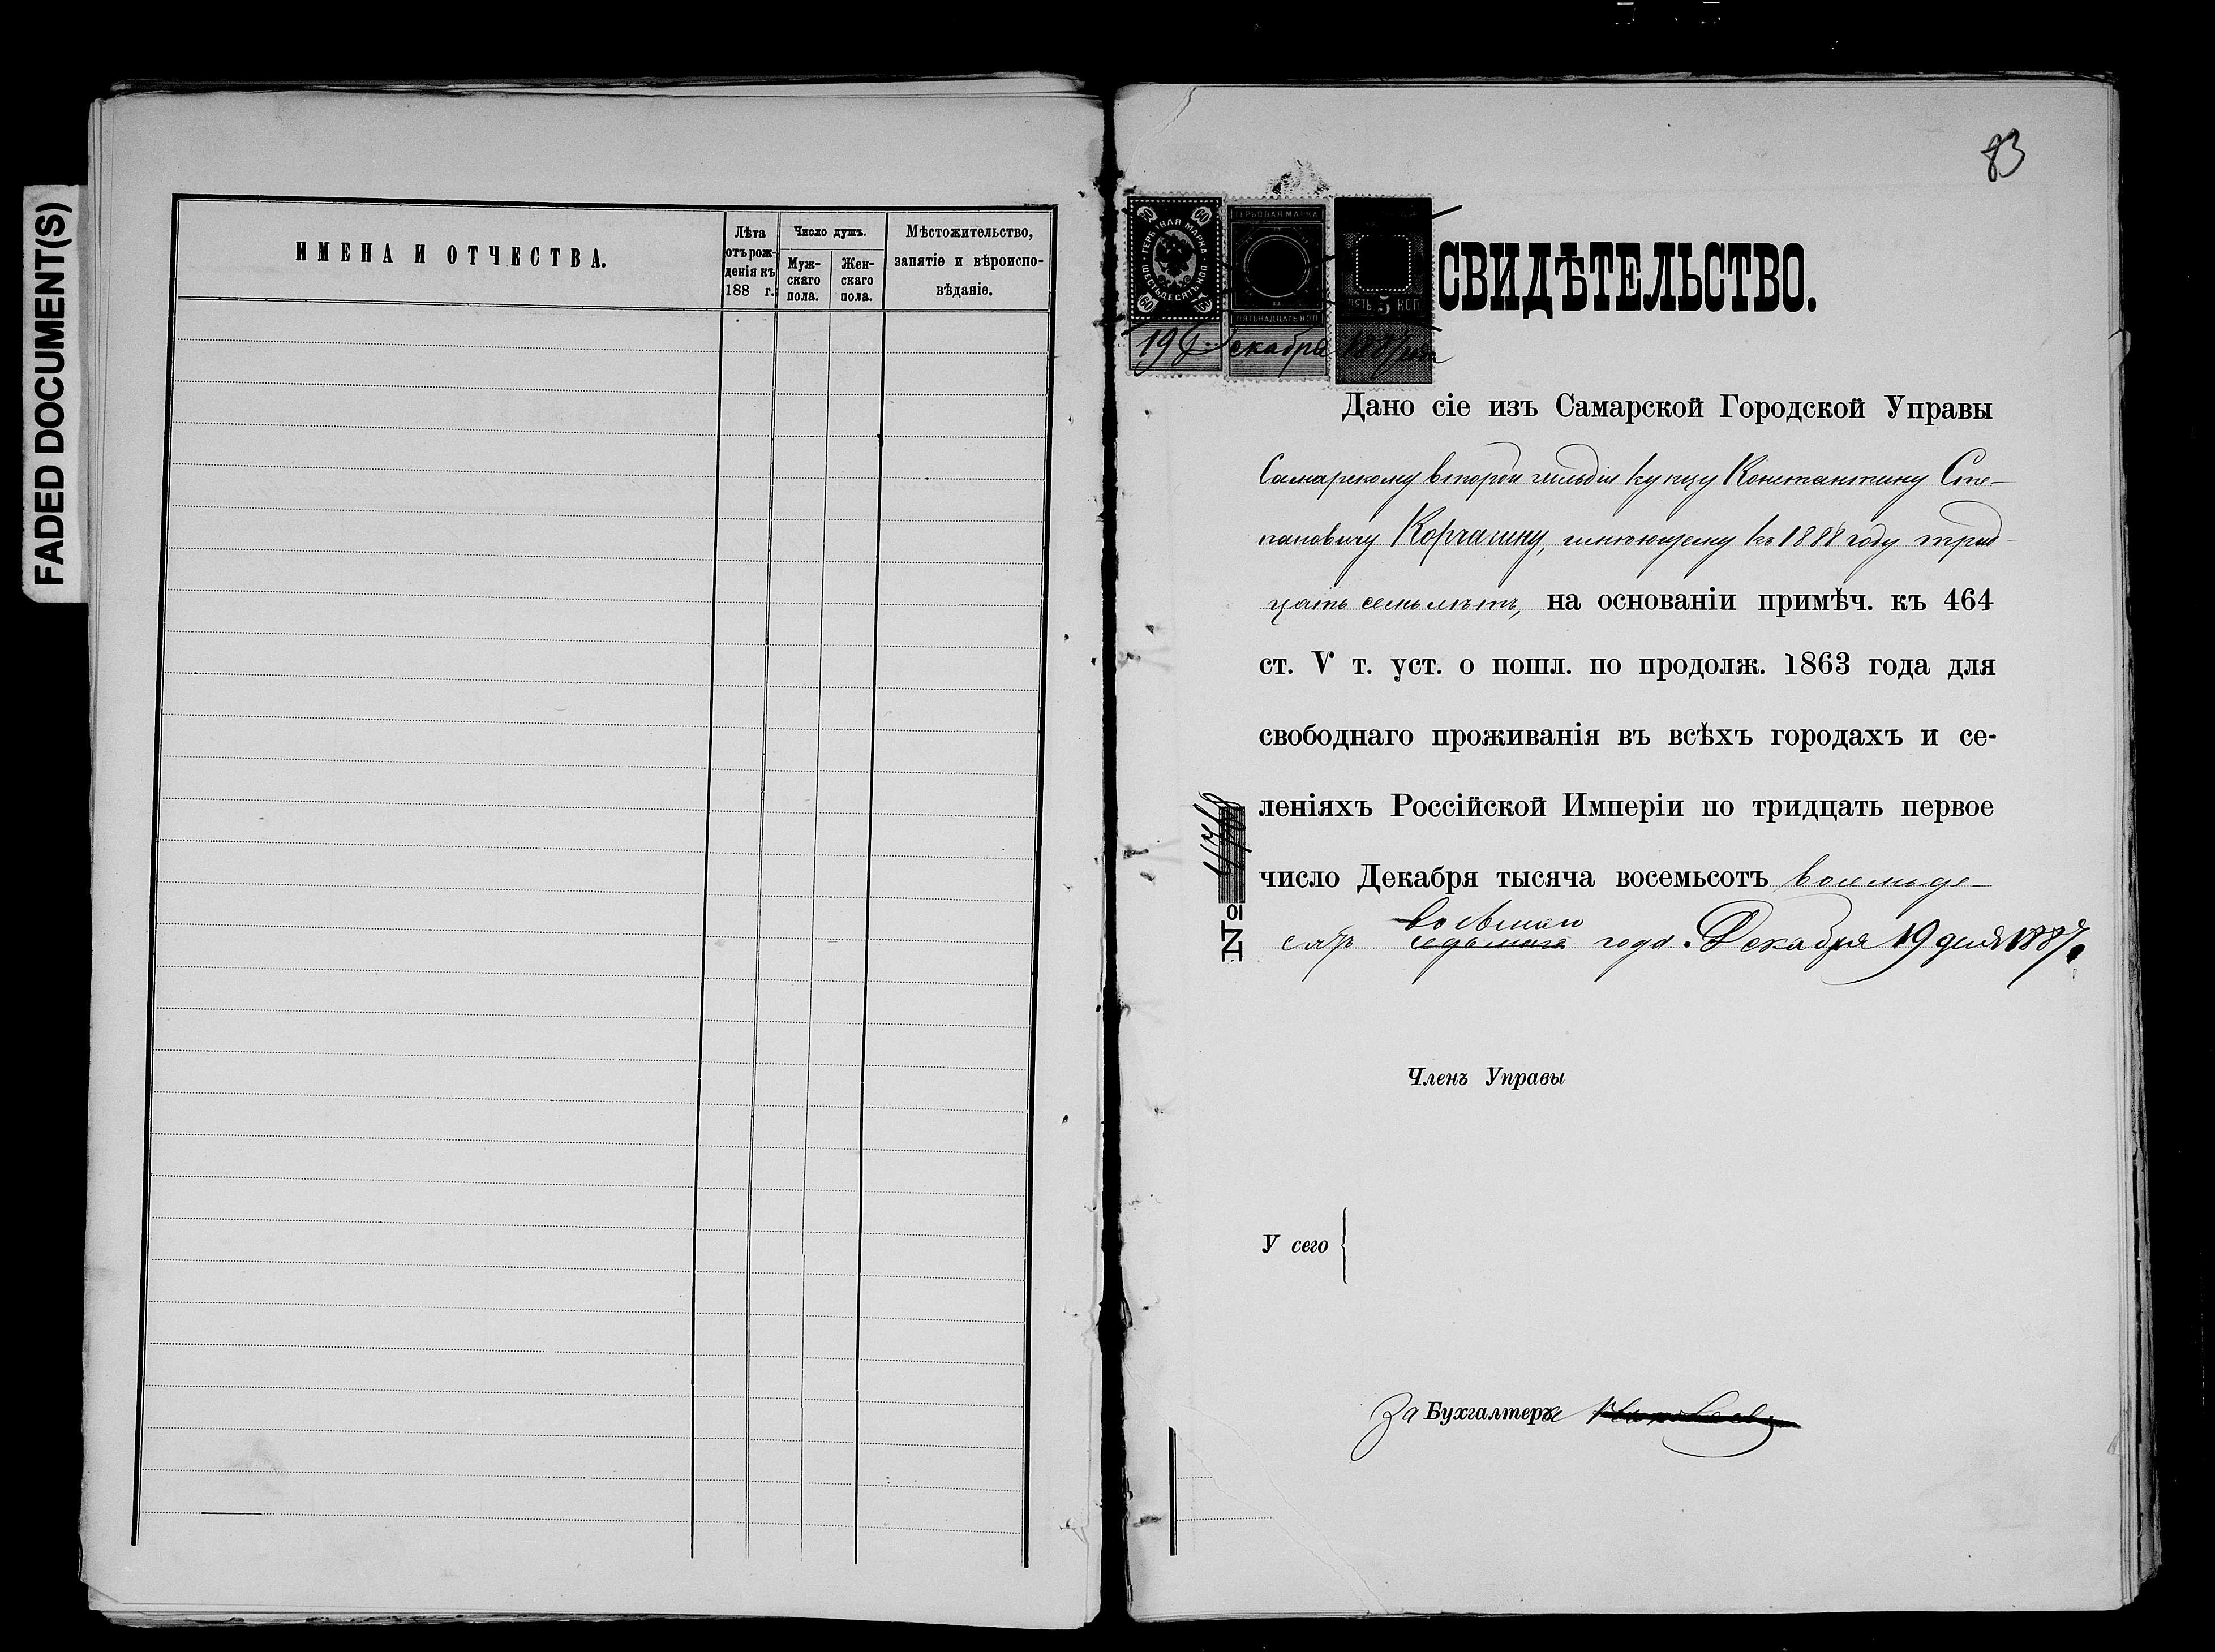 FADED DOCUMENT(S)
ИМЕНА И ОТЧЕСТВА.
Лѣта
отъ рож-
денія къ
188 г.
Число душъ.
Муж-
скаго
пола.
Жен-
скаго
пола.
Мѣстожительство,
занятіе и вѣроиспо-
вѣданіе.
83
ГЕРБОВАЯ МАРКА
ШЕСТЬДЕСЯТЪ КОП.
60 60
60 60
ГЕРБОВАЯ МАРКА
ПЯТЬНАДЦАТЬ КОП
ПЯТЬ 5 КОП
19 Декабря 1887 года
СВИДѢТЕЛЬСТВО.
Дано сіе изъ Самарской Городской Управы
Самарскому второй гильдіи купцу Константину Сте-
пановичу Корчагину, имѣющему къ 1888 году трид-
цать семь лѣтъ, на основаніи примѣч. къ 464
ст. V т. уст. о пошл. по продолж. 1863 года для
свободнаго проживанія въ всѣхъ городахъ и се-
леніяхъ Россійской Имперіи по тридцать первое
число Декабря тысяча восемьсотъ восемьде-
восьмаго
сятъ седьмаго года. Декабря 19 дня 1887 г.
№
Членъ Управы
У сего
За Бухгалтера